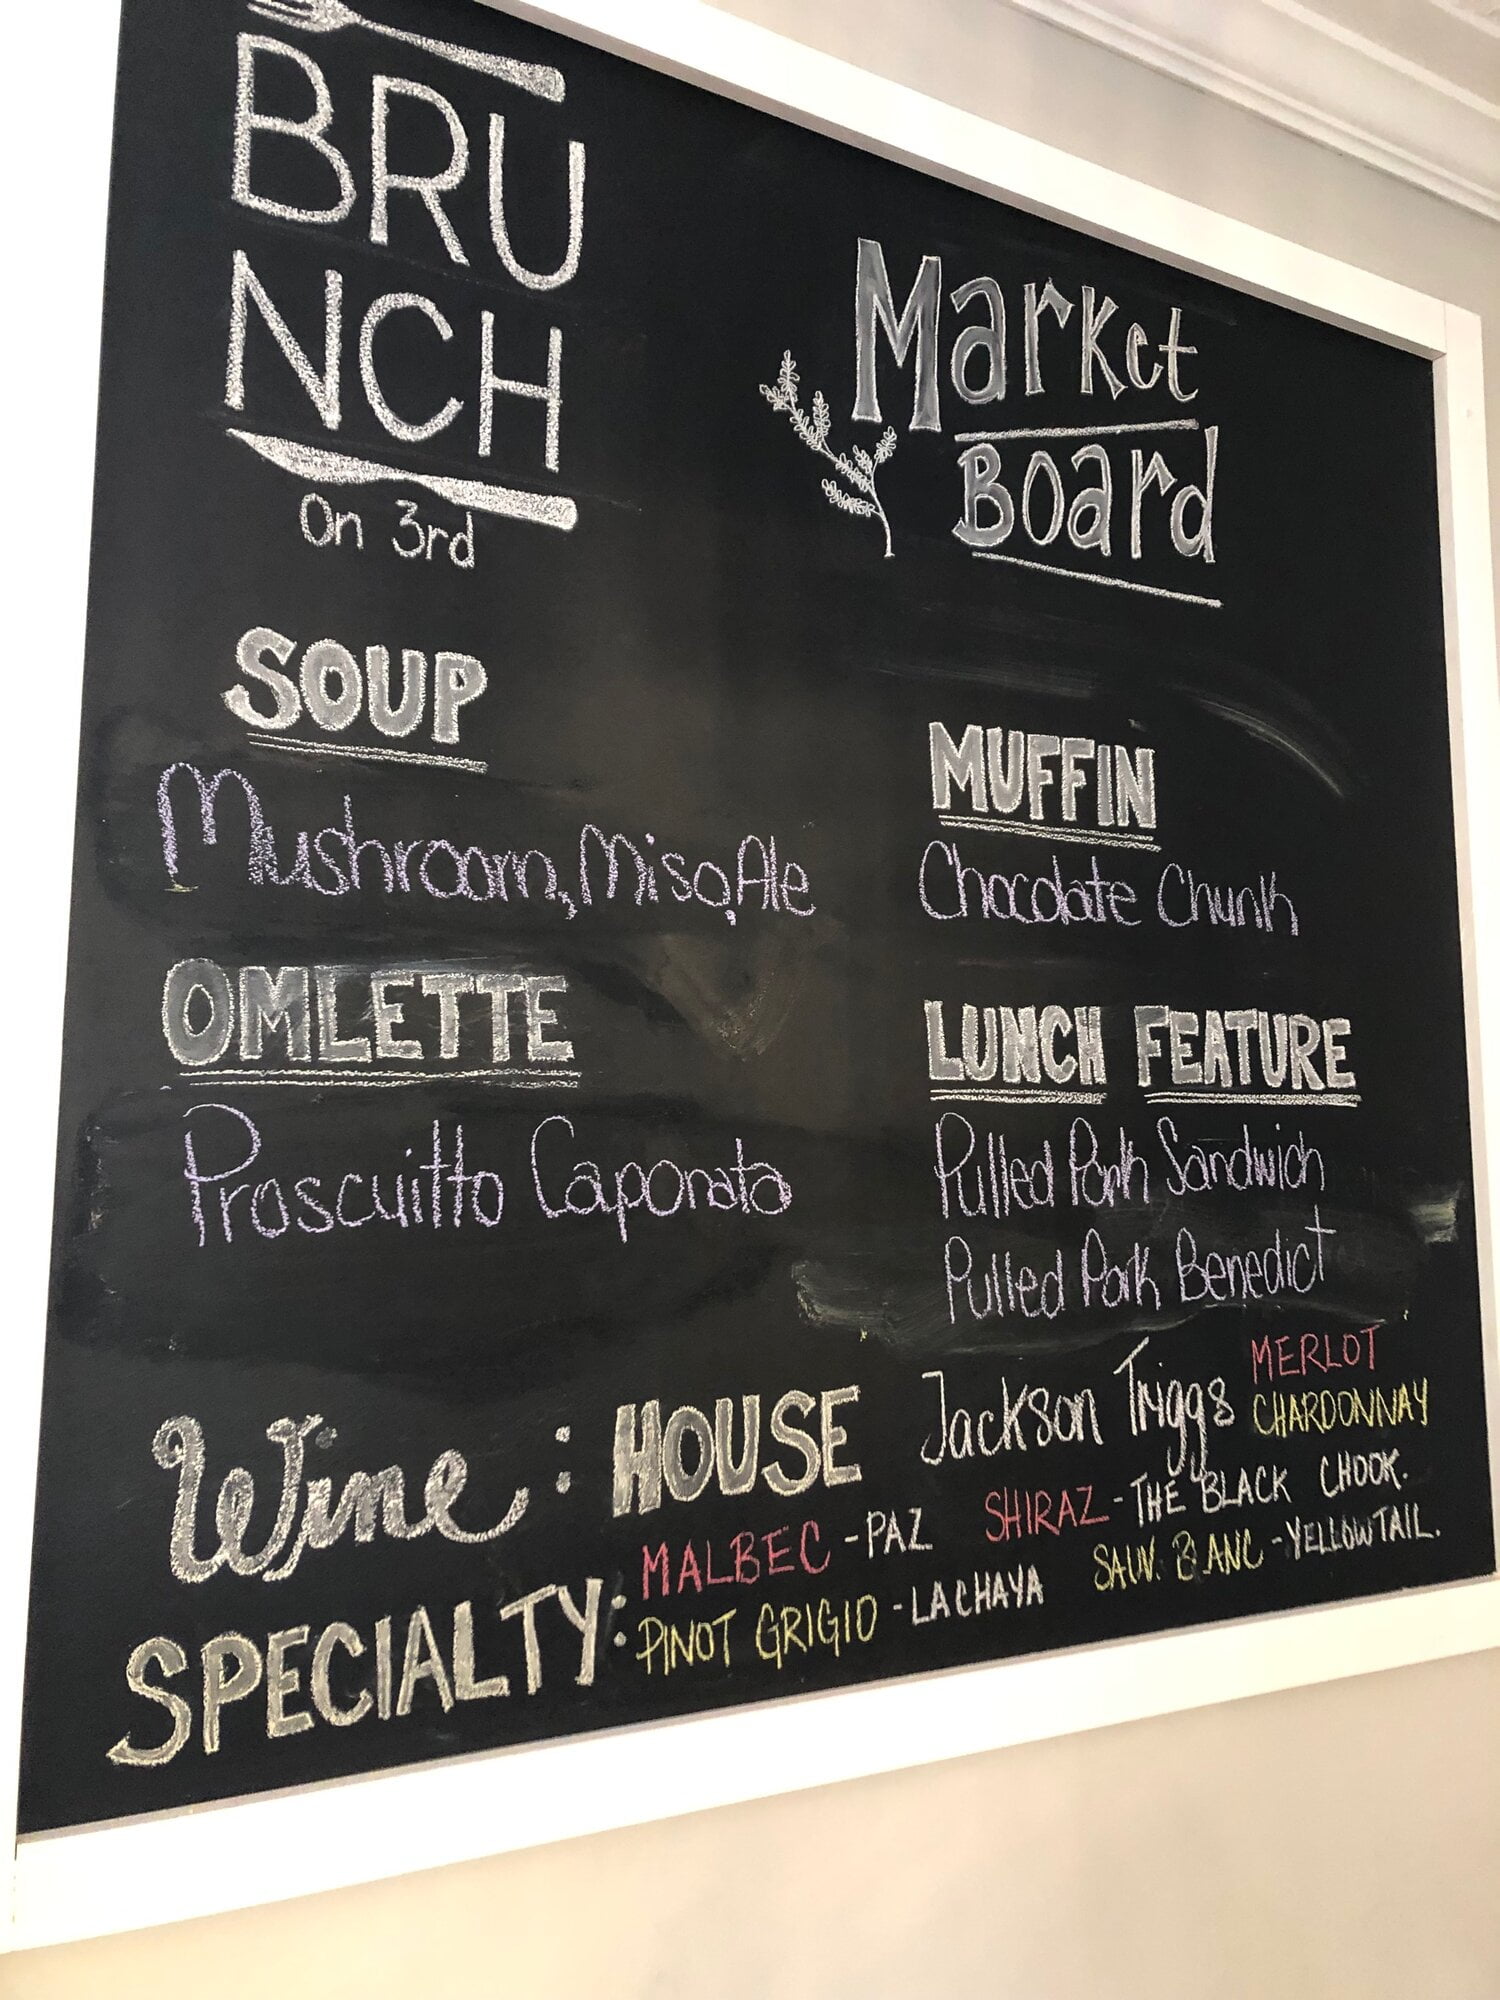 BRU
NCH
On 3rd
Market
Board
SOUP
Mushroom, Miso, Ale
OMLETTE
Proscuitto Caponata
MUFFIN
Chocolate Chunk
LUNCH FEATURE
Pulled Pork Sandwich
Pulled Pork Benedict
Wine: HOUSE Jackson Triggs MERLOT
CHARDONNAY
SPECIALTY: MALBEC - PAZ SHIRAZ - THE BLACK CHOOK.
PINOT GRIGIO - LA CHAYA SAUV. BLANC - YELLOWTAIL.